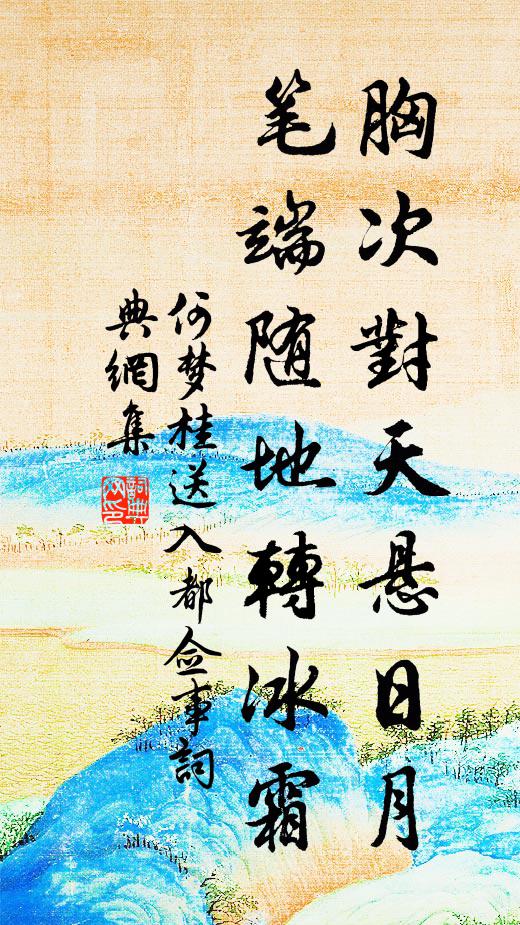 胸次對天悬日月
笔端随地轉冰霜
何梦桂送入都佥事詞
典網集